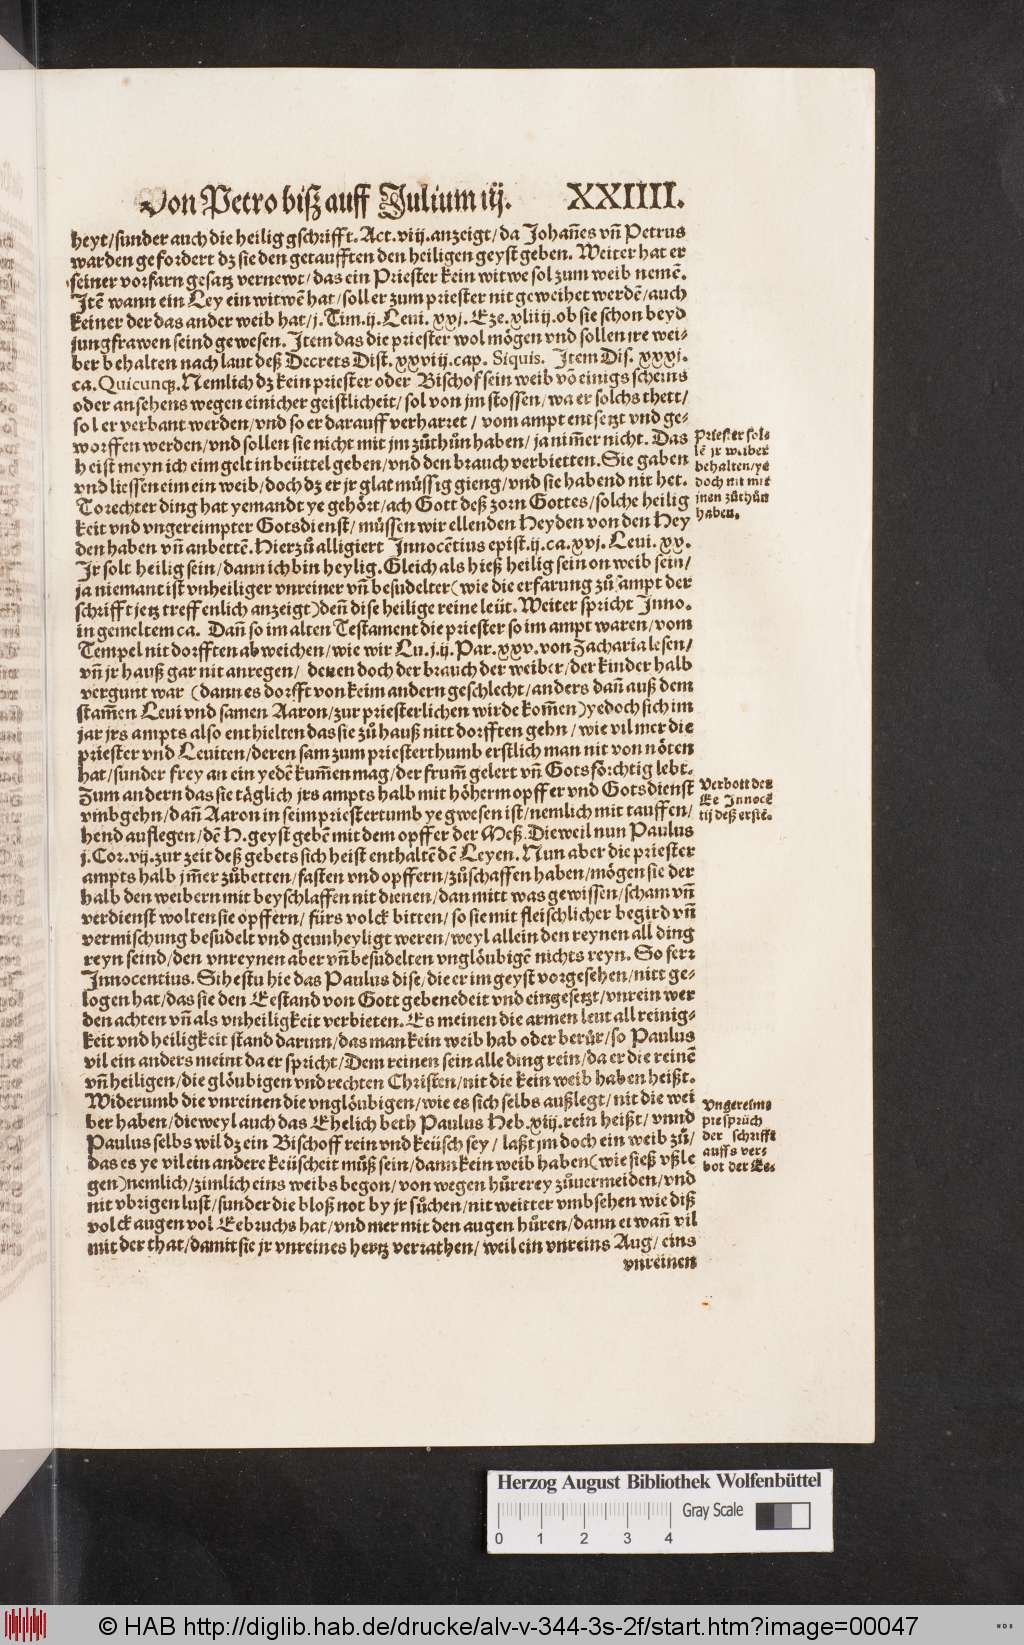 Von Petro biß auff Julium iij. XXIIII.
heyt/sunder auch die heilig gschrifft. Act. viij. anzeigt/da Johañes vñ Petrus
warden gefordert dz sie den getaufften den heiligen geyst geben. Weiter hat er
seiner vorfarn gesatz vernewt/das ein Priester kein witwe sol zum weib nemẽ.
Jtẽ wann ein Ley ein witwẽ hat/soll er zum priester nit geweihet werdẽ/auch
keiner der das ander weib hat/j. Tim. ij. Leui. xxj. Eze. xliiij. ob sie schon beyd
jungfrawen seind gewesen. Jtem das die priester wol mögen vnd sollen jre wei-
ber behalten nach laut deß Decrets Dist. xxviij. cap. Siquis. Jtem Dis. xxxj.
ca. Quicunq;. Nemlich dz kein priester oder Bischof sein weib võ einigs scheins
oder ansehens wegen einicher geistlicheit/sol von jm stossen/wa er solchs thett/
sol er verbant werden/vnd so er darauff verharret/vom ampt entsetzt vnd ge-
worffen werden/vnd sollen sie nicht mit jm zůthůn haben/ja nim̃er nicht. Das
heist meyn ich eim gelt in beüttel geben/vnd den brauch verbietten. Sie gaben
vnd liessen eim ein weib/doch dz er jr glat müssig gieng/vnd sie habend nit het.
Torechter ding hat yemandt ye gehört/ach Gott deß zorn Gottes/solche heilig
keit vnd vngereimpter Gotsdienst/müssen wir ellenden Heyden von den Hey
den haben vñ anbettẽ. Hierzů alligiert Jnnocẽtius epist. ij. ca. xvj. Leui. xx.
Jr solt heilig sein/dann ich bin heylig. Gleich als hieß heilig sein on weib sein/
ja niemant ist vnheiliger vnreiner vñ besudelter (wie die erfarung zů ampt der
schrifft jetz treffenlich anzeigt) deñ dise heilige reine leüt. Weiter spricht Jnno.
in gemeltem ca. Dañ so im alten Testament die priester so im ampt waren/vom
Tempel nit dorfften abweichen/wie wir Lu. j. ij. Par. xxv. von Zacharia lesen/
vñ jr hauß gar nit anregen/ denen doch der brauch der weiber/der kinder halb
vergunt war (dann es dorfft von keim andern geschlecht/anders dañ auß dem
stam̃en Leui vnd samen Aaron/zur priesterlichen wirde kom̃en) yedoch sich im
jar jrs ampts also enthielten das sie zů hauß nitt dorfften gehn/wie vil mer die
priester vnd Leuiten/deren sam zum priesterthumb erstlich man nit von nöten
hat/sunder frey an ein yedẽ kum̃en mag/der frum̃ gelert vñ Gotsförchtig lebt.
Zum andern das sie täglich jrs ampts halb mit höherm opffer vnd Gotsdienst
vmbgehn/dañ Aaron in seim priestertumb ye gwesen ist/nemlich mit tauffen/
hend auflegen/dẽ H. geyst gebẽ mit dem opffer der Meß. Dieweil nun Paulus
j. Cor. vij. zur zeit deß gebets sich heist enthaltẽ dẽ Leyen. Nun aber die priester
ampts halb jm̃er zůbetten/fasten vnd opffern/zůschaffen haben/mögen sie der
halb den weibern mit beyschlaffen nit dienen/dan mitt was gewissen/scham vñ
verdienst wolten sie opffern/fürs volck bitten/so sie mit fleischlicher begird vñ
vermischung besudelt vnd geunheyligt weren/weyl allein den reynen all ding
reyn seind/den vnreynen aber vñ besudelten vnglöubigẽ nichts reyn. So ferr
Jnnocentius. Sihestu hie das Paulus dise/die er im geyst vorgesehen/nitt ge-
logen hat/das sie den Eestand von Gott gebenedeit vnd eingesetzt/vnrein wer
den achten vñ als vnheiligkeit verbieten. Es meinen die armen leut all reinig-
keit vnd heiligkeit stand darinn/das man kein weib hab oder berůr/so Paulus
vil ein anders meint da er spricht/Dem reinen sein alle ding rein/da er die reinẽ
vñ heiligen/die glöubigen vnd rechten Christen/nit die kein weib haben heißt.
Widerumb die vnreinen die vnglöubigen/wie es sich selbs außlegt/nit die wei
ber haben/dieweyl auch das Ehelich beth Paulus Heb. xiij. rein heißt/vnnd
Paulus selbs wil dz ein Bischoff rein vnd keüsch sey/laßt jm doch ein weib zů/
das es ye vil ein andere keüscheit můß sein/dann kein weib haben (wie sieß vßle
gen) nemlich/zimlich eins weibs begon/von wegen hůrerey zůuermeiden/vnd
nit vbrigen lust/sunder die bloß not by jr sůchen/nit weitter vmbsehen wie diß
volck augen vol Eebruchs hat/vnd mer mit den augen hůren/dann etwañ vil
mit der that/damit sie jr vnreines hertz verrathen/weil ein vnreins Aug/eins
vnreinen
Priester sol-
lẽ jr weiber
behalten/ye
doch nit mit
jnen zůthůn
haben.
Verbott der
Ee Jnnocẽ
tij deß erstẽ.
Vngereimp
te sprüch
der schrifft
auffs ver-
bot der Ee.
Herzog August Bibliothek Wolfenbüttel
0 1 2 3 4 Gray Scale
© HAB http://diglib.hab.de/drucke/alv-v-344-3s-2f/start.htm?image=00047